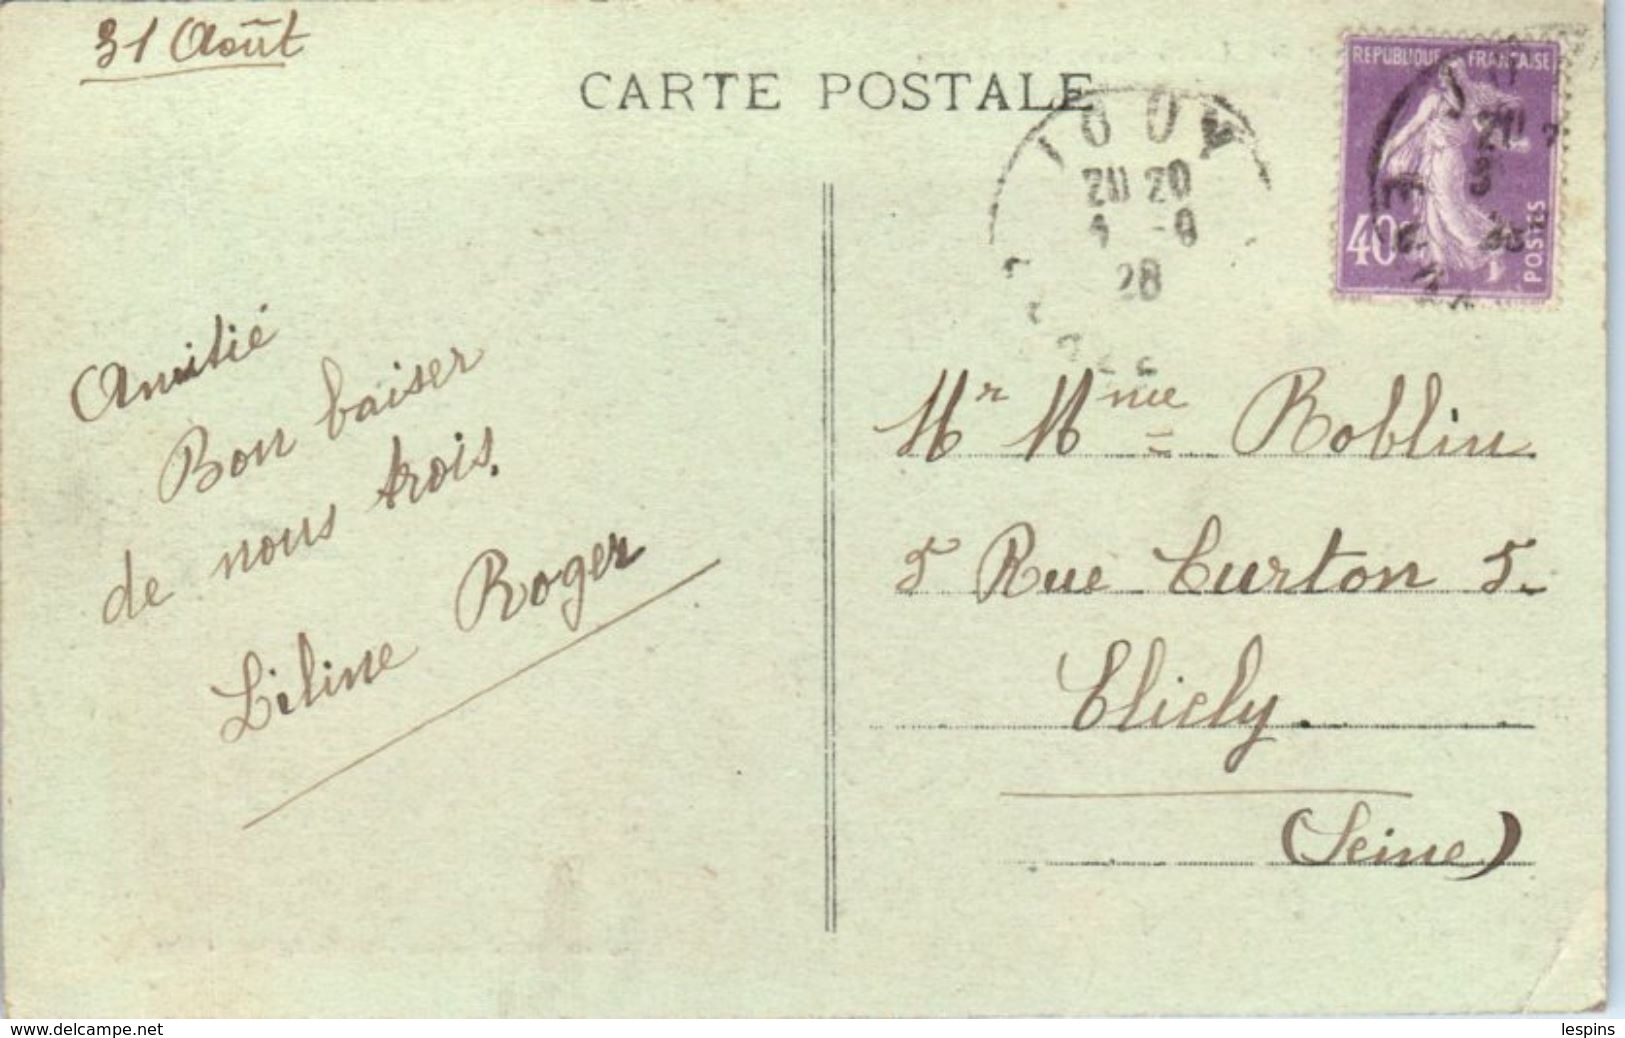 31 Août
CARTE POSTALE
REPUBLIQUE FRANÇAISE
40c
POSTES
20 20
1 -9
28
Amitié
Bon baiser
de nous trois.
Liline Roger
Mr Mme Roblin
5 Rue Curton 5
Clichy.
(Seine)
www.delcampe.net
lespins